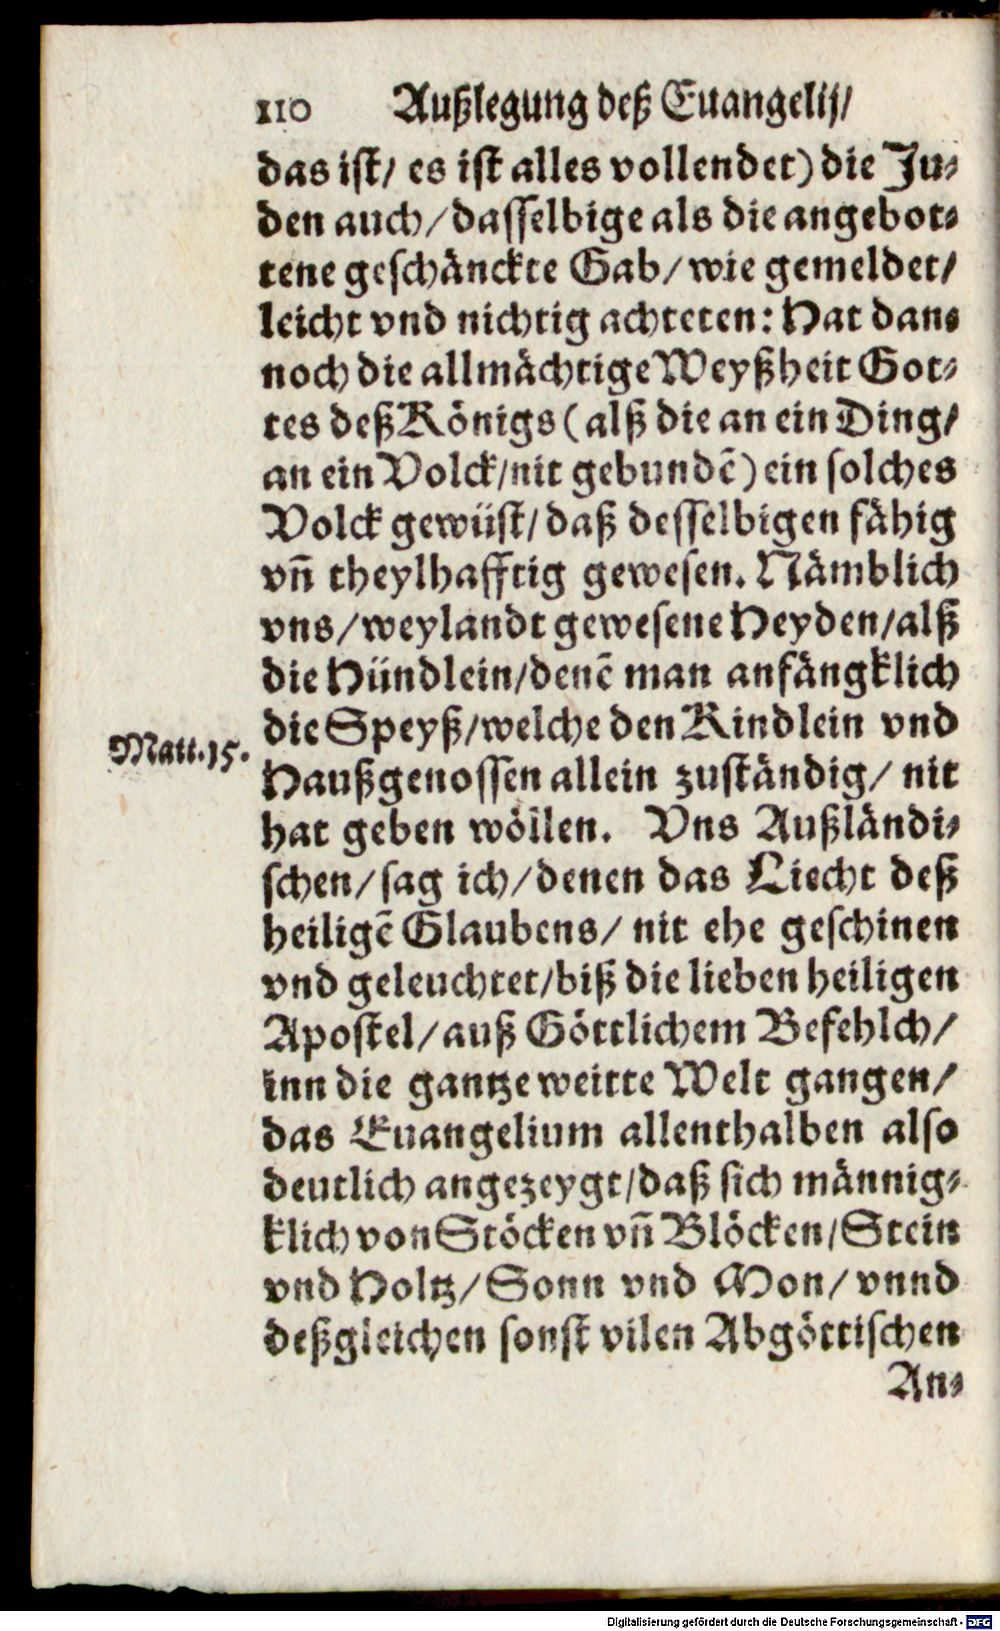 110 Außlegung deß Euangelij/
das ist/ es ist alles vollendet) die Ju-
den auch/ dasselbige als die angebot-
tene geschänckte Gab/ wie gemeldet/
leicht vnd nichtig achteten: Hat dan-
noch die allmächtige Weyßheit Got-
tes deß Königs (alß die an ein Ding/
an ein Volck/ nit gebundē) ein solches
Volck gewüst/ daß desselbigen fähig
vn̄ theylhafftig gewesen. Nämblich
vns/ weylandt gewesene Heyden/ alß
die Hündlein/ denē man anfängklich
die Speyß/ welche den Kindlein vnd
Matt.15.
Haußgenossen allein zuständig/ nit
hat geben wöllen. Vns Außländi-
schen/ sag ich/ denen das Liecht deß
heiligē Glaubens/ nit ehe geschinen
vnd geleuchtet/ biß die lieben heiligen
Apostel/ auß Göttlichem Befehlch/
inn die gantze weitte Welt gangen/
das Euangelium allenthalben also
deutlich angezeygt/ daß sich männig-
klich von Stöcken vn̄ Blöcken/ Stein
vnd Holtz/ Sonn vnd Mon/ vnnd
deßgleichen sonst vilen Abgöttischen
An-
Digitalisierung gefördert durch die Deutsche Forschungsgemeinschaft - DFG